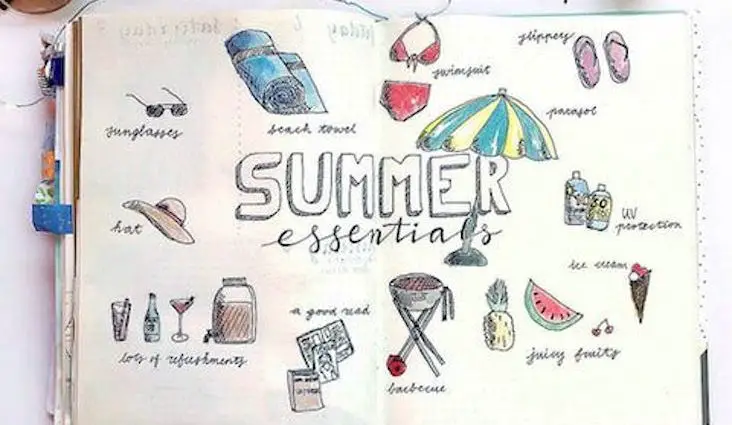 slippers
swimsuit
parasol
sunglasses
beach towel
SUMMER
essentials
hat
UV
protection
ice cream
50
a good read
lots of refreshments
juicy fruits
barbecue